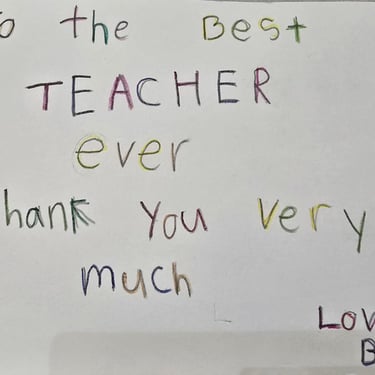 o the Best
TEACHER
ever
hank you very
much
Lov
B